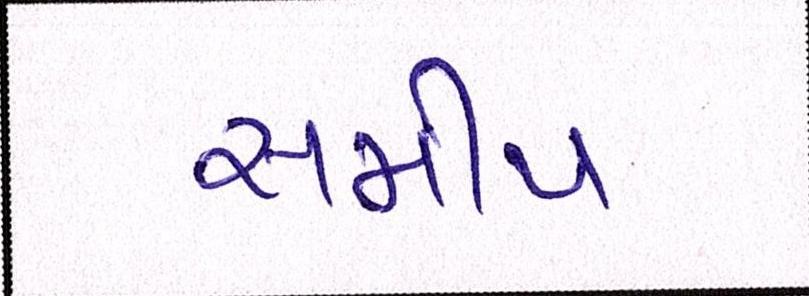 સમીપ